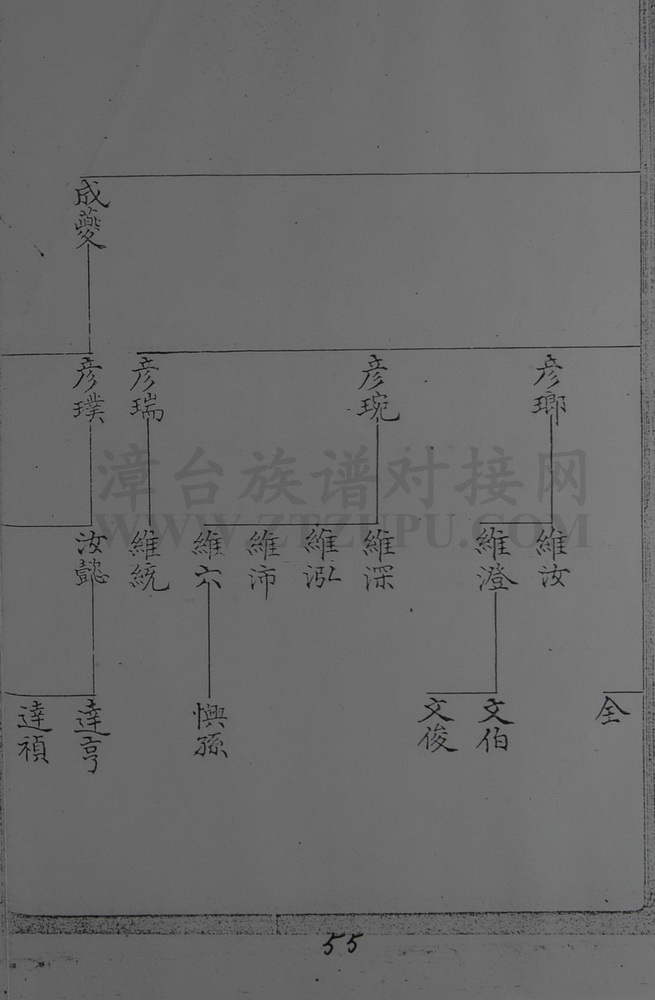 成夔
彦瑯
彦琬
彦瑞
彦璞
維汝
維澄
維深
維泓
維沛
維六
維統
汝懿
全
文伯
文俊
懊孫
達亨
達禎
漳台族谱对接网
WWW.ZTZUPU.COM
55